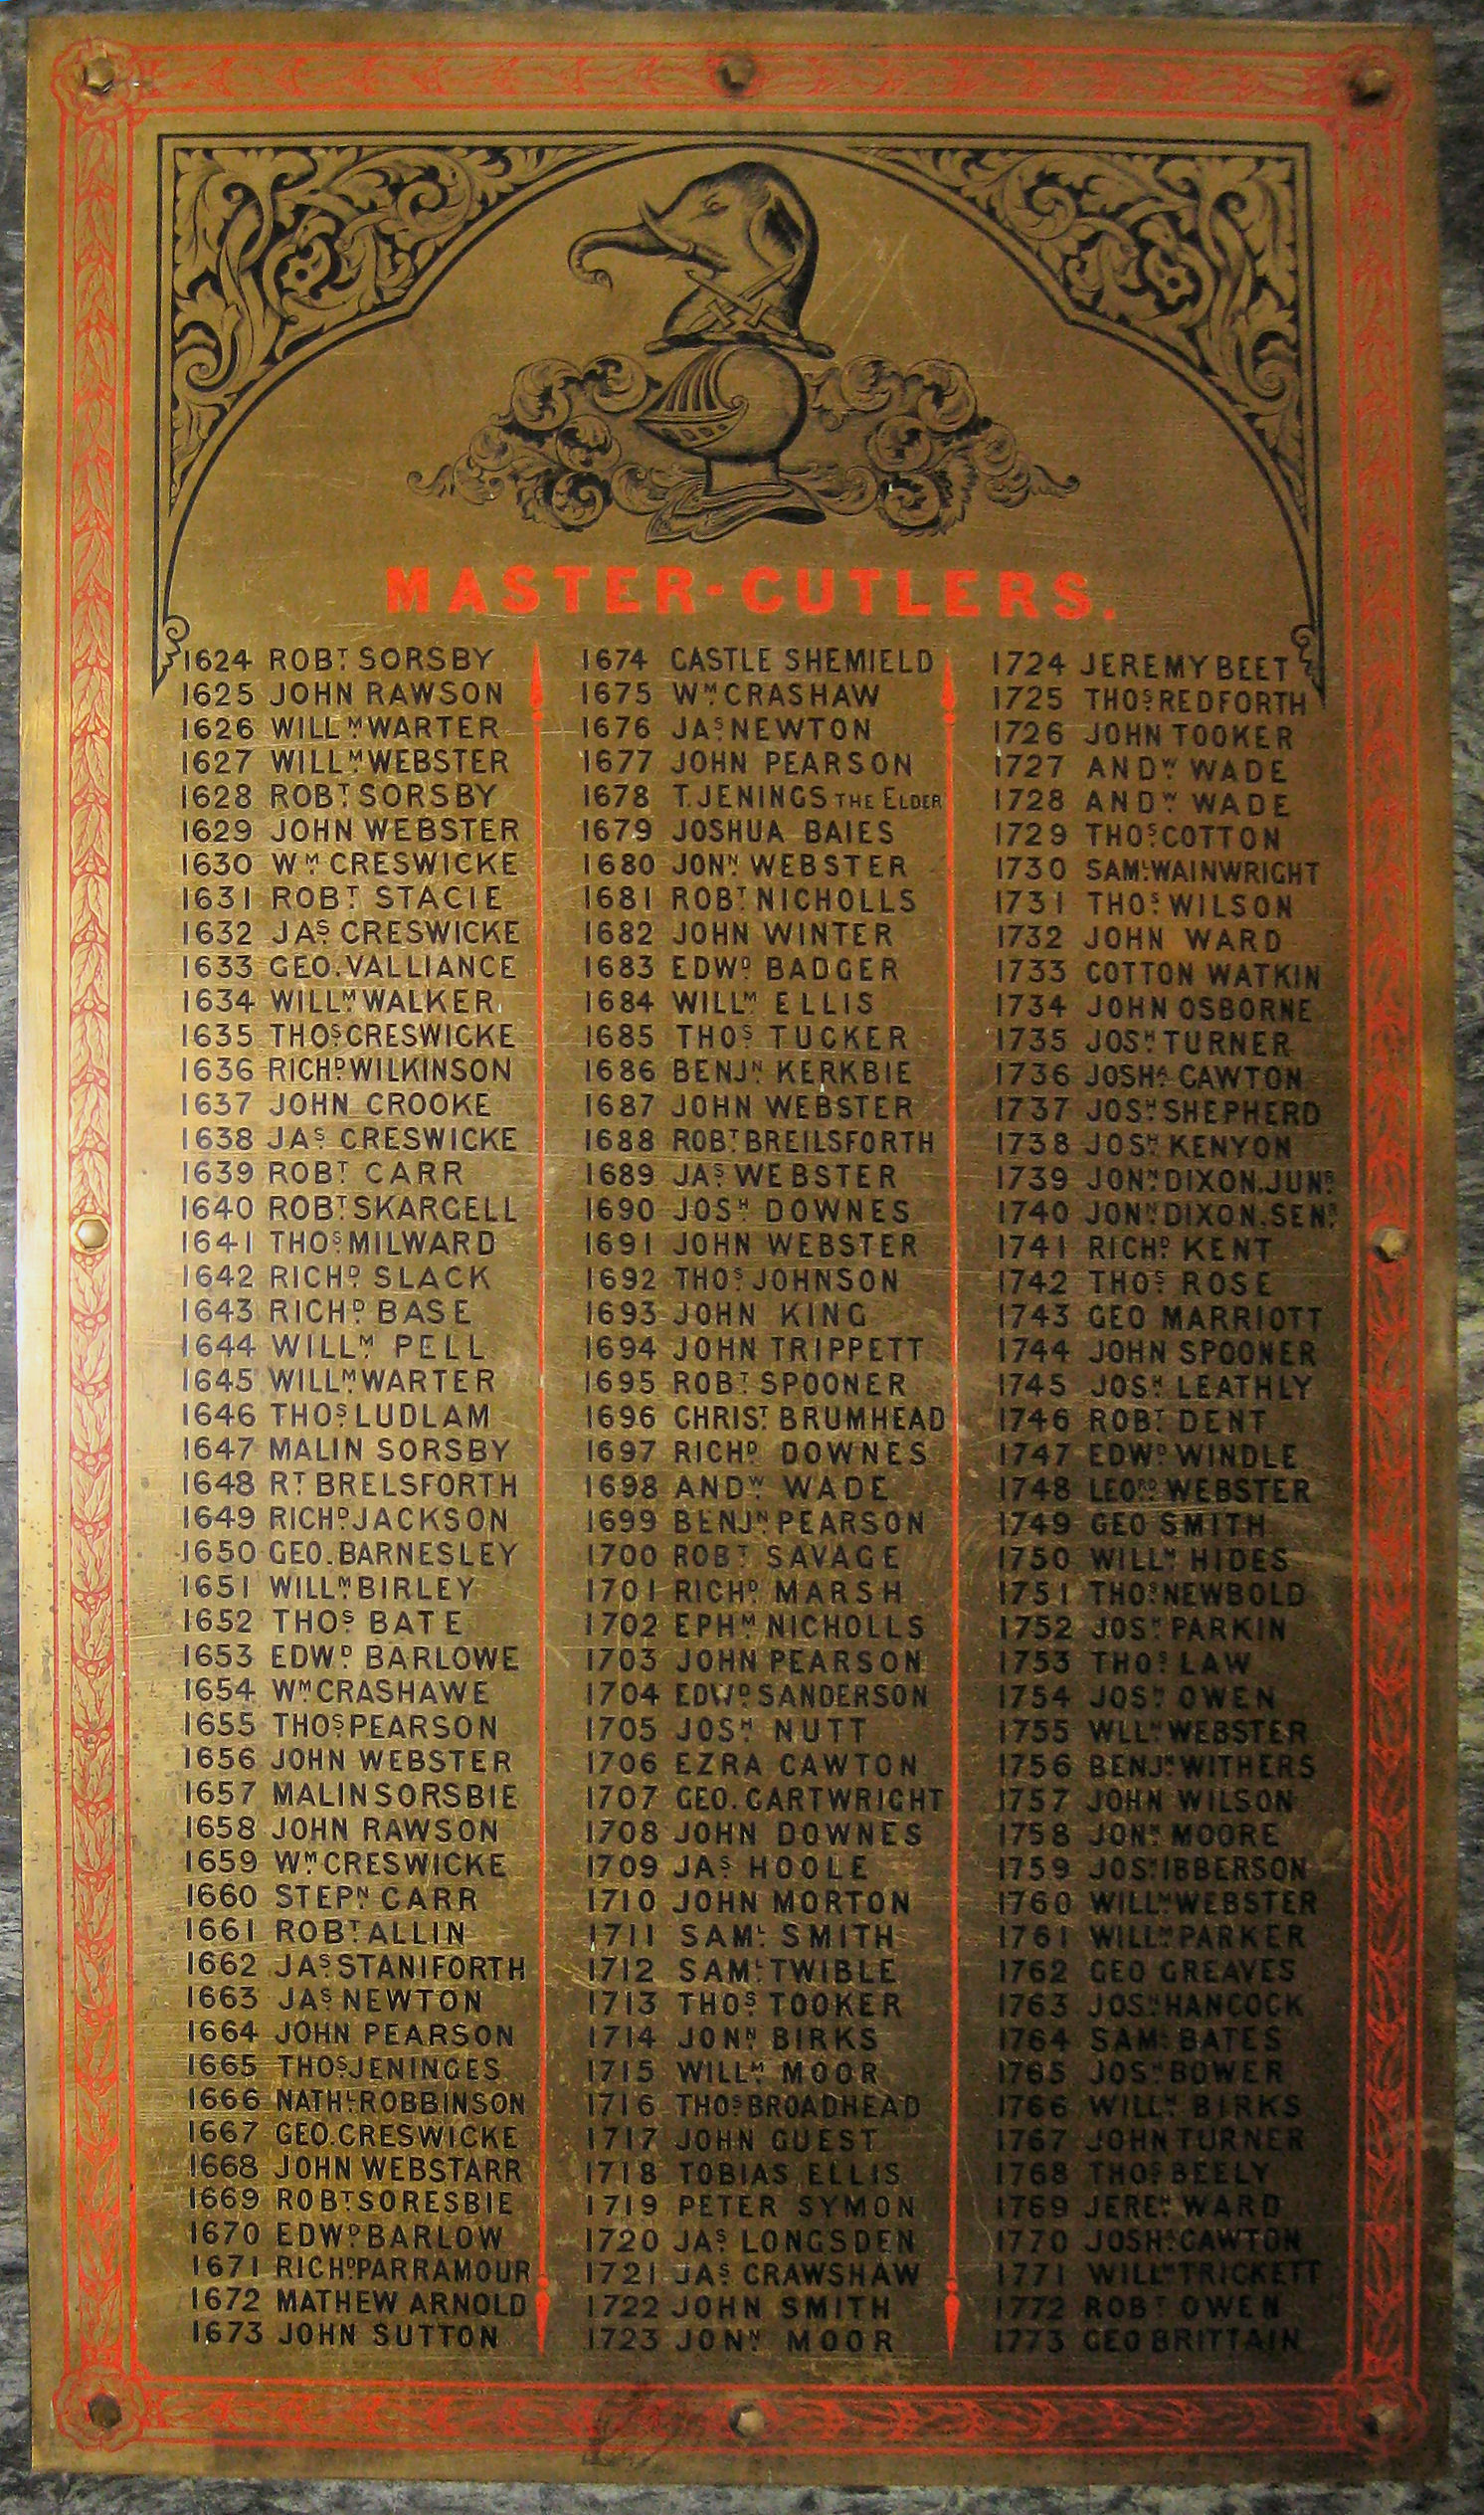 MASTER-CUTLERS.
1624 ROBT SORSBY
1625 JOHN RAWSON
1626 WILLM WARTER
1627 WILLM WEBSTER
1628 ROBT SORSBY
1629 JOHN WEBSTER
1630 WM CRESWICKE
1631 ROBT STACIE
1632 JAS CRESWICKE
1633 GEO. VALLIANCE
1634 WILLM WALKER
1635 THOS CRESWICKE
1636 RICHD WILKINSON
1637 JOHN CROOKE
1638 JAS CRESWICKE
1639 ROBT CARR
1640 ROBT SKARGELL
1641 THOS MILWARD
1642 RICHD SLACK
1643 RICHD BASE
1644 WILLM PELL
1645 WILLM WARTER
1646 THOS LUDLAM
1647 MALIN SORSBY
1648 RT BRELSFORTH
1649 RICHD JACKSON
1650 GEO. BARNESLEY
1651 WILLM BIRLEY
1652 THOS BATE
1653 EDWD BARLOWE
1654 WM CRASHAWE
1655 THOS PEARSON
1656 JOHN WEBSTER
1657 MALIN SORSBIE
1658 JOHN RAWSON
1659 WM CRESWICKE
1660 STEPN CARR
1661 ROBT ALLIN
1662 JAS STANIFORTH
1663 JAS NEWTON
1664 JOHN PEARSON
1665 THOS JENINGES
1666 NATHL ROBBINSON
1667 GEO. CRESWICKE
1668 JOHN WEBSTARR
1669 ROBT SORESBIE
1670 EDWD BARLOW
1671 RICHD PARRAMOUR
1672 MATHEW ARNOLD
1673 JOHN SUTTON
1674 CASTLE SHEMIELD
1675 WM CRASHAW
1676 JAS NEWTON
1677 JOHN PEARSON
1678 T. JENINGS THE ELDER
1679 JOSHUA BAIES
1680 JONN WEBSTER
1681 ROBT NICHOLLS
1682 JOHN WINTER
1683 EDWD BADGER
1684 WILLM ELLIS
1685 THOS TUCKER
1686 BENJN KERKBIE
1687 JOHN WEBSTER
1688 ROBT BREILSFORTH
1689 JAS WEBSTER
1690 JOSH DOWNES
1691 JOHN WEBSTER
1692 THOS JOHNSON
1693 JOHN KING
1694 JOHN TRIPPETT
1695 ROBT SPOONER
1696 CHRIST BRUMHEAD
1697 RICHD DOWNES
1698 ANDW WADE
1699 BENJN PEARSON
1700 ROBT SAVAGE
1701 RICHD MARSH
1702 EPHM NICHOLLS
1703 JOHN PEARSON
1704 EDWD SANDERSON
1705 JOSH NUTT
1706 EZRA CAWTON
1707 GEO. CARTWRIGHT
1708 JOHN DOWNES
1709 JAS HOOLE
1710 JOHN MORTON
1711 SAML SMITH
1712 SAML TWIBLE
1713 THOS TOOKER
1714 JONN BIRKS
1715 WILLM MOOR
1716 THOS BROADHEAD
1717 JOHN GUEST
1718 TOBIAS ELLIS
1719 PETER SYMON
1720 JAS LONGSDEN
1721 JAS CRAWSHAW
1722 JOHN SMITH
1723 JONN MOOR
1724 JEREMY BEET
1725 THOS REDFORTH
1726 JOHN TOOKER
1727 ANDW WADE
1728 ANDW WADE
1729 THOS COTTON
1730 SAML WAINWRIGHT
1731 THOS WILSON
1732 JOHN WARD
1733 COTTON WATKIN
1734 JOHN OSBORNE
1735 JOSH TURNER
1736 JOSHA CAWTON
1737 JOSH SHEPHERD
1738 JOSH KENYON
1739 JONN DIXON. JUNR
1740 JONN DIXON. SENR
1741 RICHD KENT
1742 THOS ROSE
1743 GEO MARRIOTT
1744 JOHN SPOONER
1745 JOSH LEATHLY
1746 ROBT DENT
1747 EDWD WINDLE
1748 LEORD WEBSTER
1749 GEO SMITH
1750 WILLM HIDES
1751 THOS NEWBOLD
1752 JOSH PARKIN
1753 THOS LAW
1754 JOSH OWEN
1755 WLLM WEBSTER
1756 BENJN WITHERS
1757 JOHN WILSON
1758 JONN MOORE
1759 JOSH IBBERSON
1760 WILLM WEBSTER
1761 WILLM PARKER
1762 GEO GREAVES
1763 JOSH HANCOCK
1764 SAML BATES
1765 JOSH BOWER
1766 WILLM BIRKS
1767 JOHN TURNER
1768 THOS BEELY
1769 JEREH WARD
1770 JOSHA CAWTON
1771 WILLM TRICKETT
1772 ROBT OWEN
1773 GEO BRITTAIN